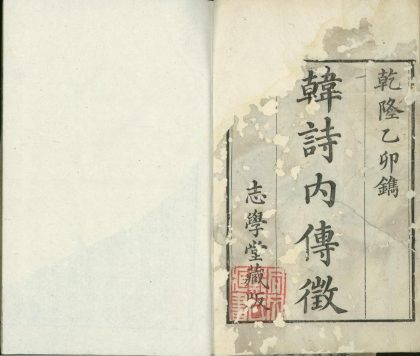 乾隆乙卯鐫
韓詩内傳徵
志學堂藏版